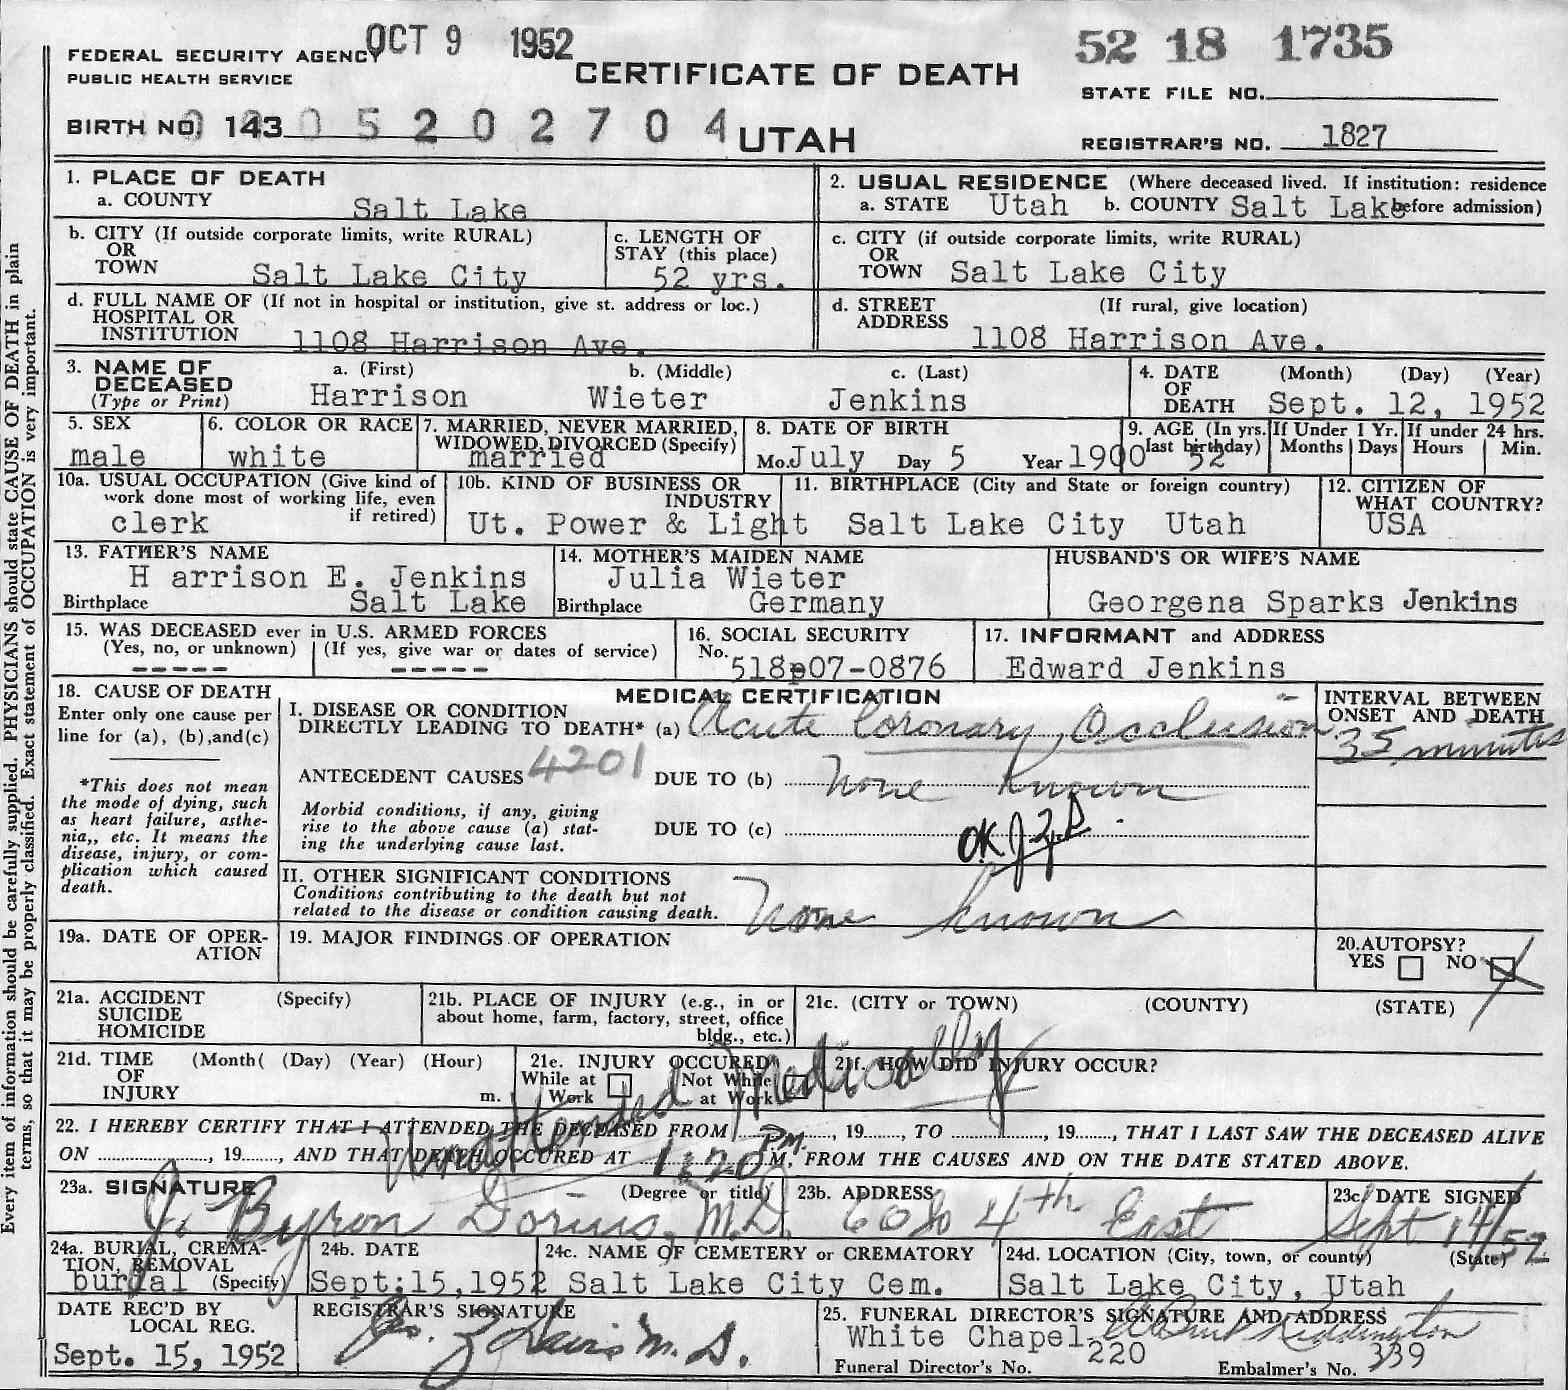 OCT 9 1952
52 18 1735
FEDERAL SECURITY AGENCY
PUBLIC HEALTH SERVICE
CERTIFICATE OF DEATH
STATE FILE NO.
BIRTH NO. 143 05202704
UTAH
REGISTRAR'S NO. 1827
Every item of information should be carefully supplied. PHYSICIANS should state CAUSE OF DEATH in plain
terms, so that it may be properly classified. Exact statement of OCCUPATION is very important.
1. PLACE OF DEATH
a. COUNTY Salt Lake
2. USUAL RESIDENCE (Where deceased lived. If institution: residence
a. STATE Utah b. COUNTY Salt Lake before admission)
b. CITY (If outside corporate limits, write RURAL)
OR
TOWN Salt Lake City
c. LENGTH OF
STAY (this place)
52 yrs.
c. CITY (if outside corporate limits, write RURAL)
OR
TOWN Salt Lake City
d. FULL NAME OF (If not in hospital or institution, give st. address or loc.)
HOSPITAL OR
INSTITUTION 1108 Harrison Ave.
d. STREET (If rural, give location)
ADDRESS 1108 Harrison Ave.
3. NAME OF a. (First) b. (Middle) c. (Last)
DECEASED
(Type or Print) Harrison Wieter Jenkins
4. DATE (Month) (Day) (Year)
OF
DEATH Sept. 12, 1952
5. SEX
male
6. COLOR OR RACE
white
7. MARRIED, NEVER MARRIED,
WIDOWED, DIVORCED (Specify)
married
8. DATE OF BIRTH
Mo. July Day 5 Year 1900
9. AGE (In yrs.
last birthday)
52
If Under 1 Yr.
Months Days
If under 24 hrs.
Hours Min.
10a. USUAL OCCUPATION (Give kind of
work done most of working life, even
if retired)
clerk
10b. KIND OF BUSINESS OR
INDUSTRY
Ut. Power & Light
11. BIRTHPLACE (City and State or foreign country)
Salt Lake City Utah
12. CITIZEN OF
WHAT COUNTRY?
USA
13. FATHER'S NAME
H arrison E. Jenkins
Birthplace Salt Lake
14. MOTHER'S MAIDEN NAME
Julia Wieter
Birthplace Germany
HUSBAND'S OR WIFE'S NAME
Georgena Sparks Jenkins
15. WAS DECEASED ever in U.S. ARMED FORCES
(Yes, no, or unknown) (If yes, give war or dates of service)
----- -----
16. SOCIAL SECURITY
No. 518p07-0876
17. INFORMANT and ADDRESS
Edward Jenkins
18. CAUSE OF DEATH
Enter only one cause per
line for (a), (b),and(c)
*This does not mean
the mode of dying, such
as heart failure, asthe-
nia,, etc. It means the
disease, injury, or com-
plication which caused
death.
MEDICAL CERTIFICATION
I. DISEASE OR CONDITION
DIRECTLY LEADING TO DEATH* (a) Acute Coronary Occlusion
INTERVAL BETWEEN
ONSET AND DEATH
35 minutes
ANTECEDENT CAUSES 4201 DUE TO (b) None known
Morbid conditions, if any, giving
rise to the above cause (a) stat-
ing the underlying cause last.
DUE TO (c)
OK
II. OTHER SIGNIFICANT CONDITIONS
Conditions contributing to the death but not
related to the disease or condition causing death.
None known
19a. DATE OF OPER-
ATION
19. MAJOR FINDINGS OF OPERATION
20. AUTOPSY?
YES NO
21a. ACCIDENT (Specify)
SUICIDE
HOMICIDE
21b. PLACE OF INJURY (e.g., in or
about home, farm, factory, street, office
bldg., etc.)
21c. (CITY or TOWN) (COUNTY) (STATE)
21d. TIME (Month( (Day) (Year) (Hour)
OF
INJURY m.
21e. INJURY OCCURED
While at Work Not While at Work
21f. HOW DID INJURY OCCUR?
Unattended Medically
22. I HEREBY CERTIFY THAT I ATTENDED THE DECEASED FROM , 19 , TO , 19 , THAT I LAST SAW THE DECEASED ALIVE
ON , 19 , AND THAT DEATH OCCURED AT 1:20 PM. M, FROM THE CAUSES AND ON THE DATE STATED ABOVE.
23a. SIGNATURE (Degree or title)
J. Byron Dorius, M.D.
23b. ADDRESS
4th East
23c. DATE SIGNED
Sept 14/52
24a. BURIAL, CREMA-
TION, REMOVAL
burial (Specify)
24b. DATE
Sept. 15, 1952
24c. NAME OF CEMETERY or CREMATORY
Salt Lake City Cem.
24d. LOCATION (City, town, or county) (State)
Salt Lake City, Utah
DATE REC'D BY
LOCAL REG.
Sept. 15, 1952
REGISTRAR'S SIGNATURE
M. D.
25. FUNERAL DIRECTOR'S SIGNATURE AND ADDRESS
White Chapel
Funeral Director's No. 220 Embalmer's No. 339